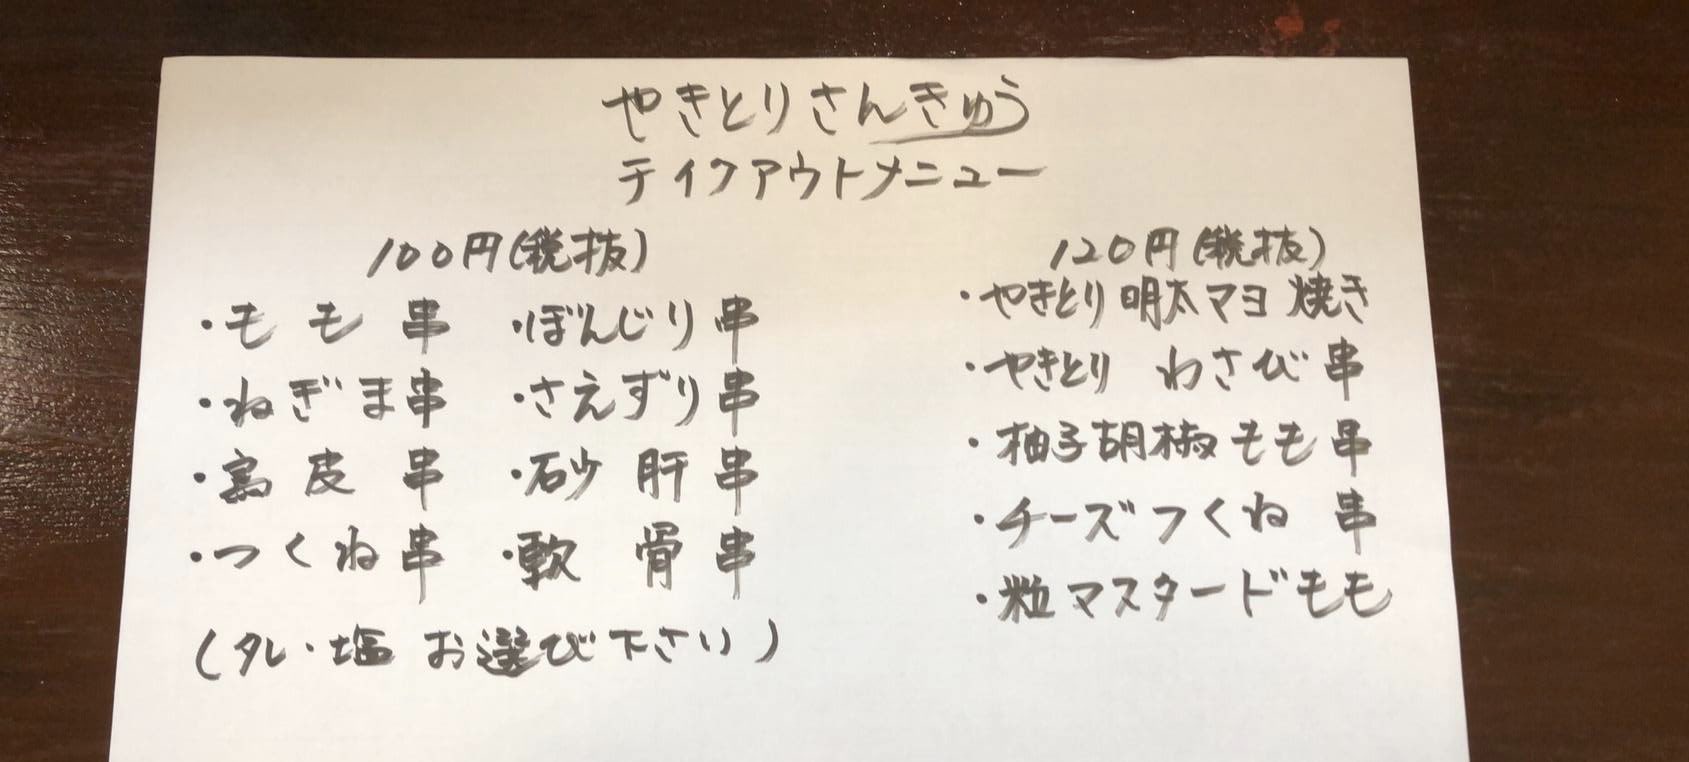 やきとりさんきゅう
テイクアウトメニュー
100円(税抜)
・もも串 ・ぼんじり串
・ねぎま串 ・さえずり串
・鳥皮串 ・砂肝串
・つくね串 ・軟骨串
(タレ・塩 お選び下さい)
120円(税抜)
・やきとり明太マヨ焼き
・やきとり わさび串
・柚子胡椒もも串
・チーズつくね串
・粒マスタードもも